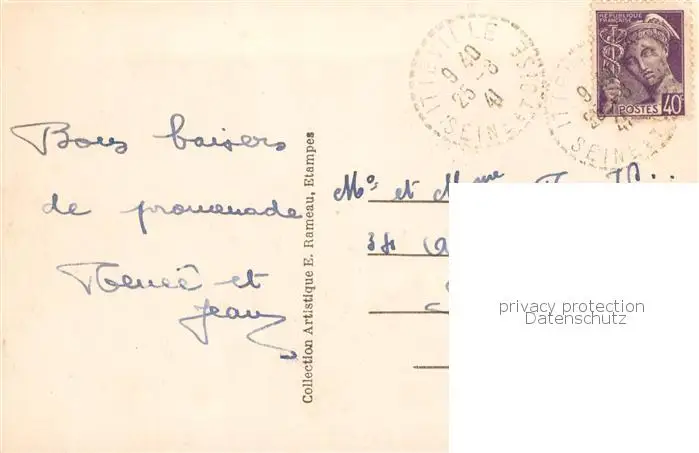 Bons baisers
de promenade
Renée et
Jean
Collection Artistique E. Rameau, Etampes
9 40
25 - 8
41
SEINE ET OISE
REPUBLIQUE
FRANÇAISE
POSTES 40c
SEINE ET
Mr et Mme
34
privacy protection
Datenschutz